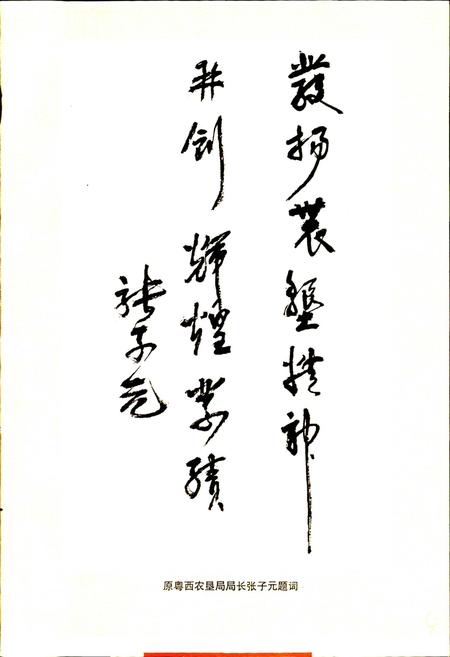 發扬農墾精神
再创辉煌業績
张子元
原粤西农垦局局长张子元题词